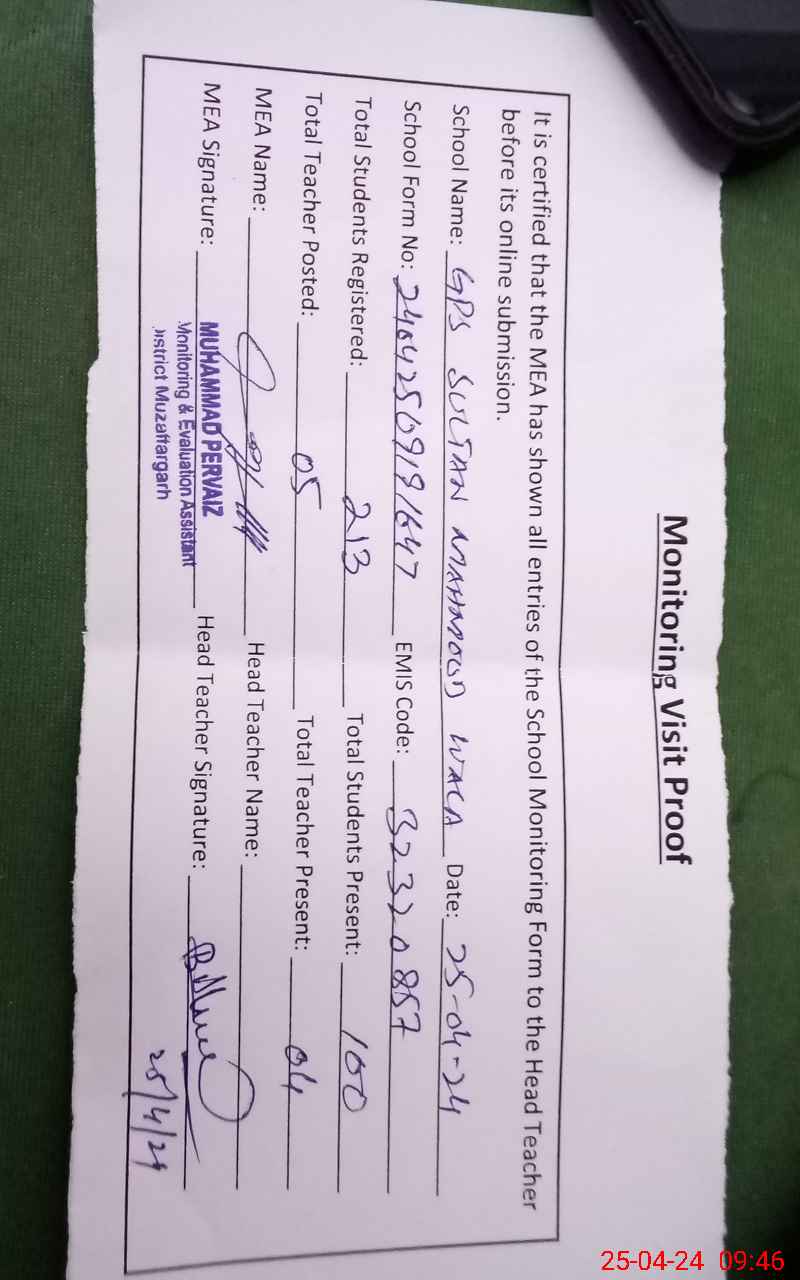 Monitoring Visit Proof
It is certified that the MEA has shown all entries of the School Monitoring Form to the Head Teacher
before its online submission.
School Name: GPS SULTAN MAHMOOD WALA Date: 25-04-24
School Form No: 24042509191647 EMIS Code: 32320857
Total Students Registered: 213 Total Students Present: 100
Total Teacher Posted: 05 Total Teacher Present: 04
MEA Name: Head Teacher Name:
MEA Signature: Head Teacher Signature:
MUHAMMAD PERVAIZ
Monitoring & Evaluation Assistant
istrict Muzaffargarh
25/4/24
25-04-24 09:46